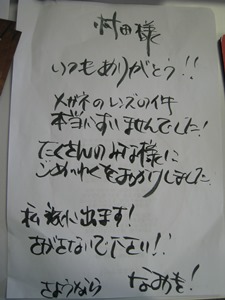 村田様
いつもありがとう!!
メガネのレンズの件
本当にすいませんでした!
たくさんのみな様に
ごめいわくをおかけしました
私 旅に出ます!
さがさないで下さい!!
さようなら なおき!